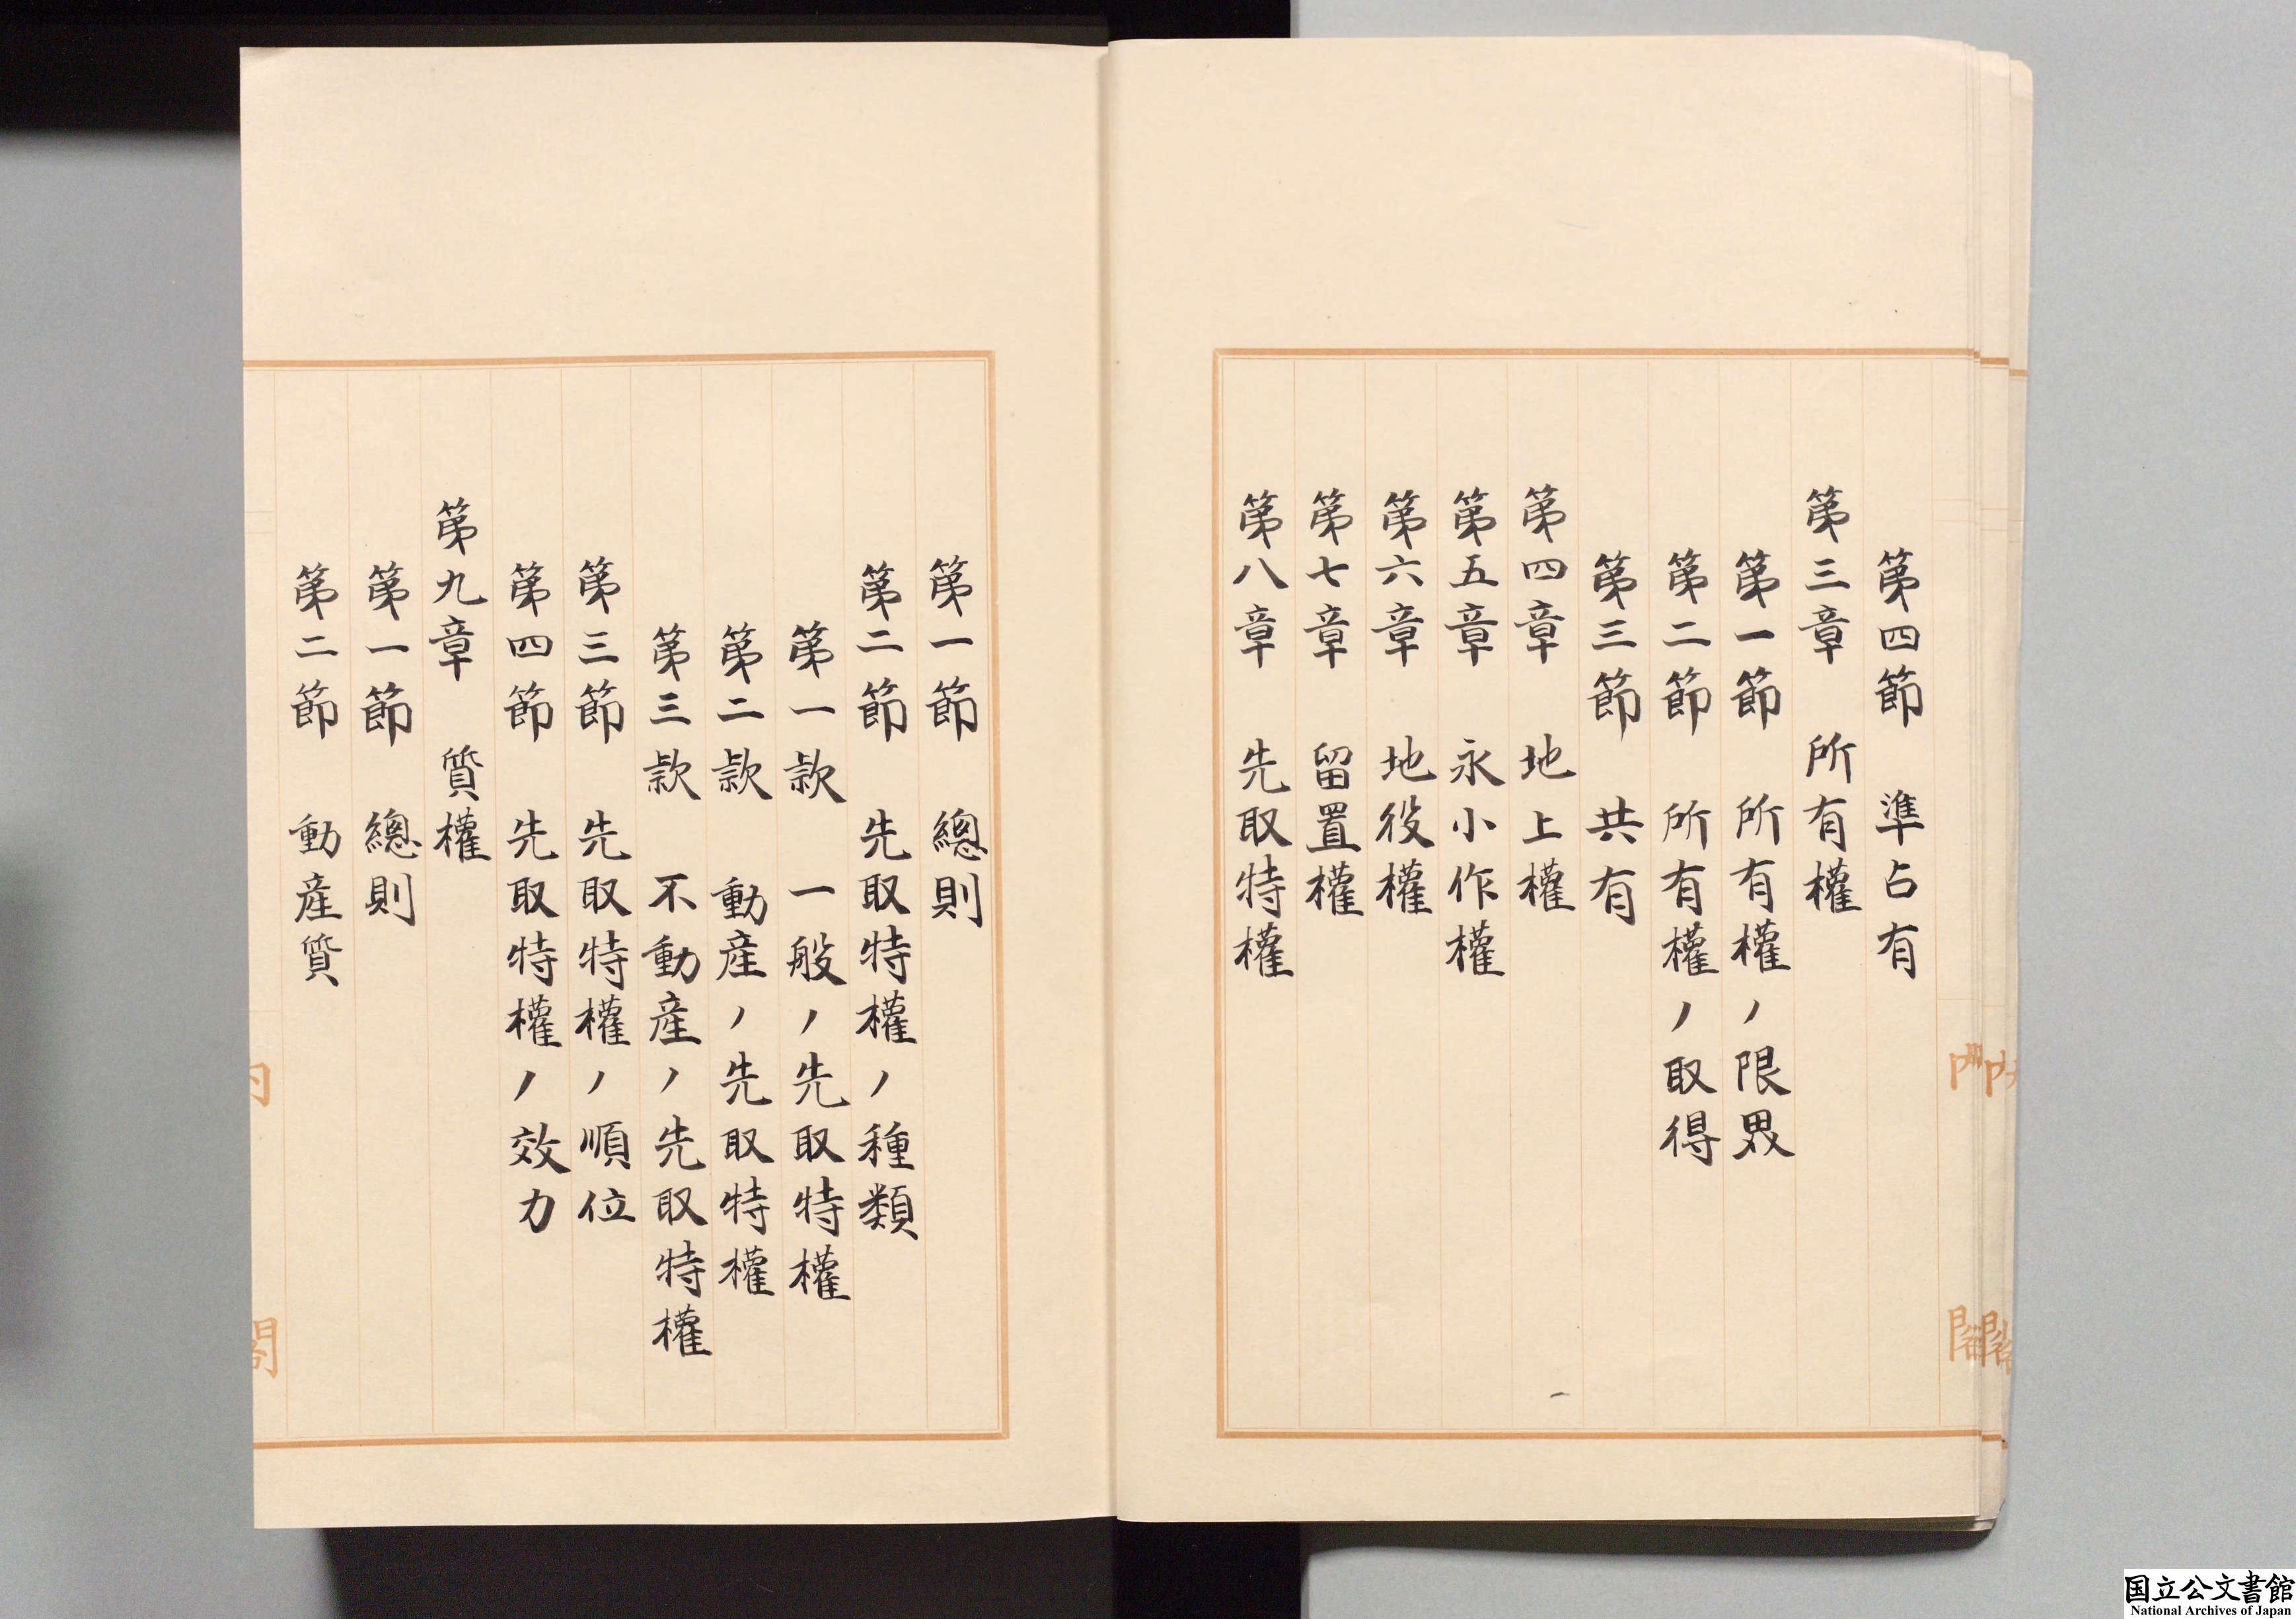 第四節　準占有
第三章　所有權
第一節　所有權ノ限界
第二節　所有權ノ取得
第三節　共有
第四章　地上權
第五章　永小作權
第六章　地役權
第七章　留置權
第八章　先取特權
第一節　總則
第二節　先取特權ノ種類
第一款　一般ノ先取特權
第二款　動産ノ先取特權
第三款　不動産ノ先取特權
第三節　先取特權ノ順位
第四節　先取特權ノ效力
第九章　質權
第一節　總則
第二節　動産質
内閣
国立公文書館
National Archives of Japan